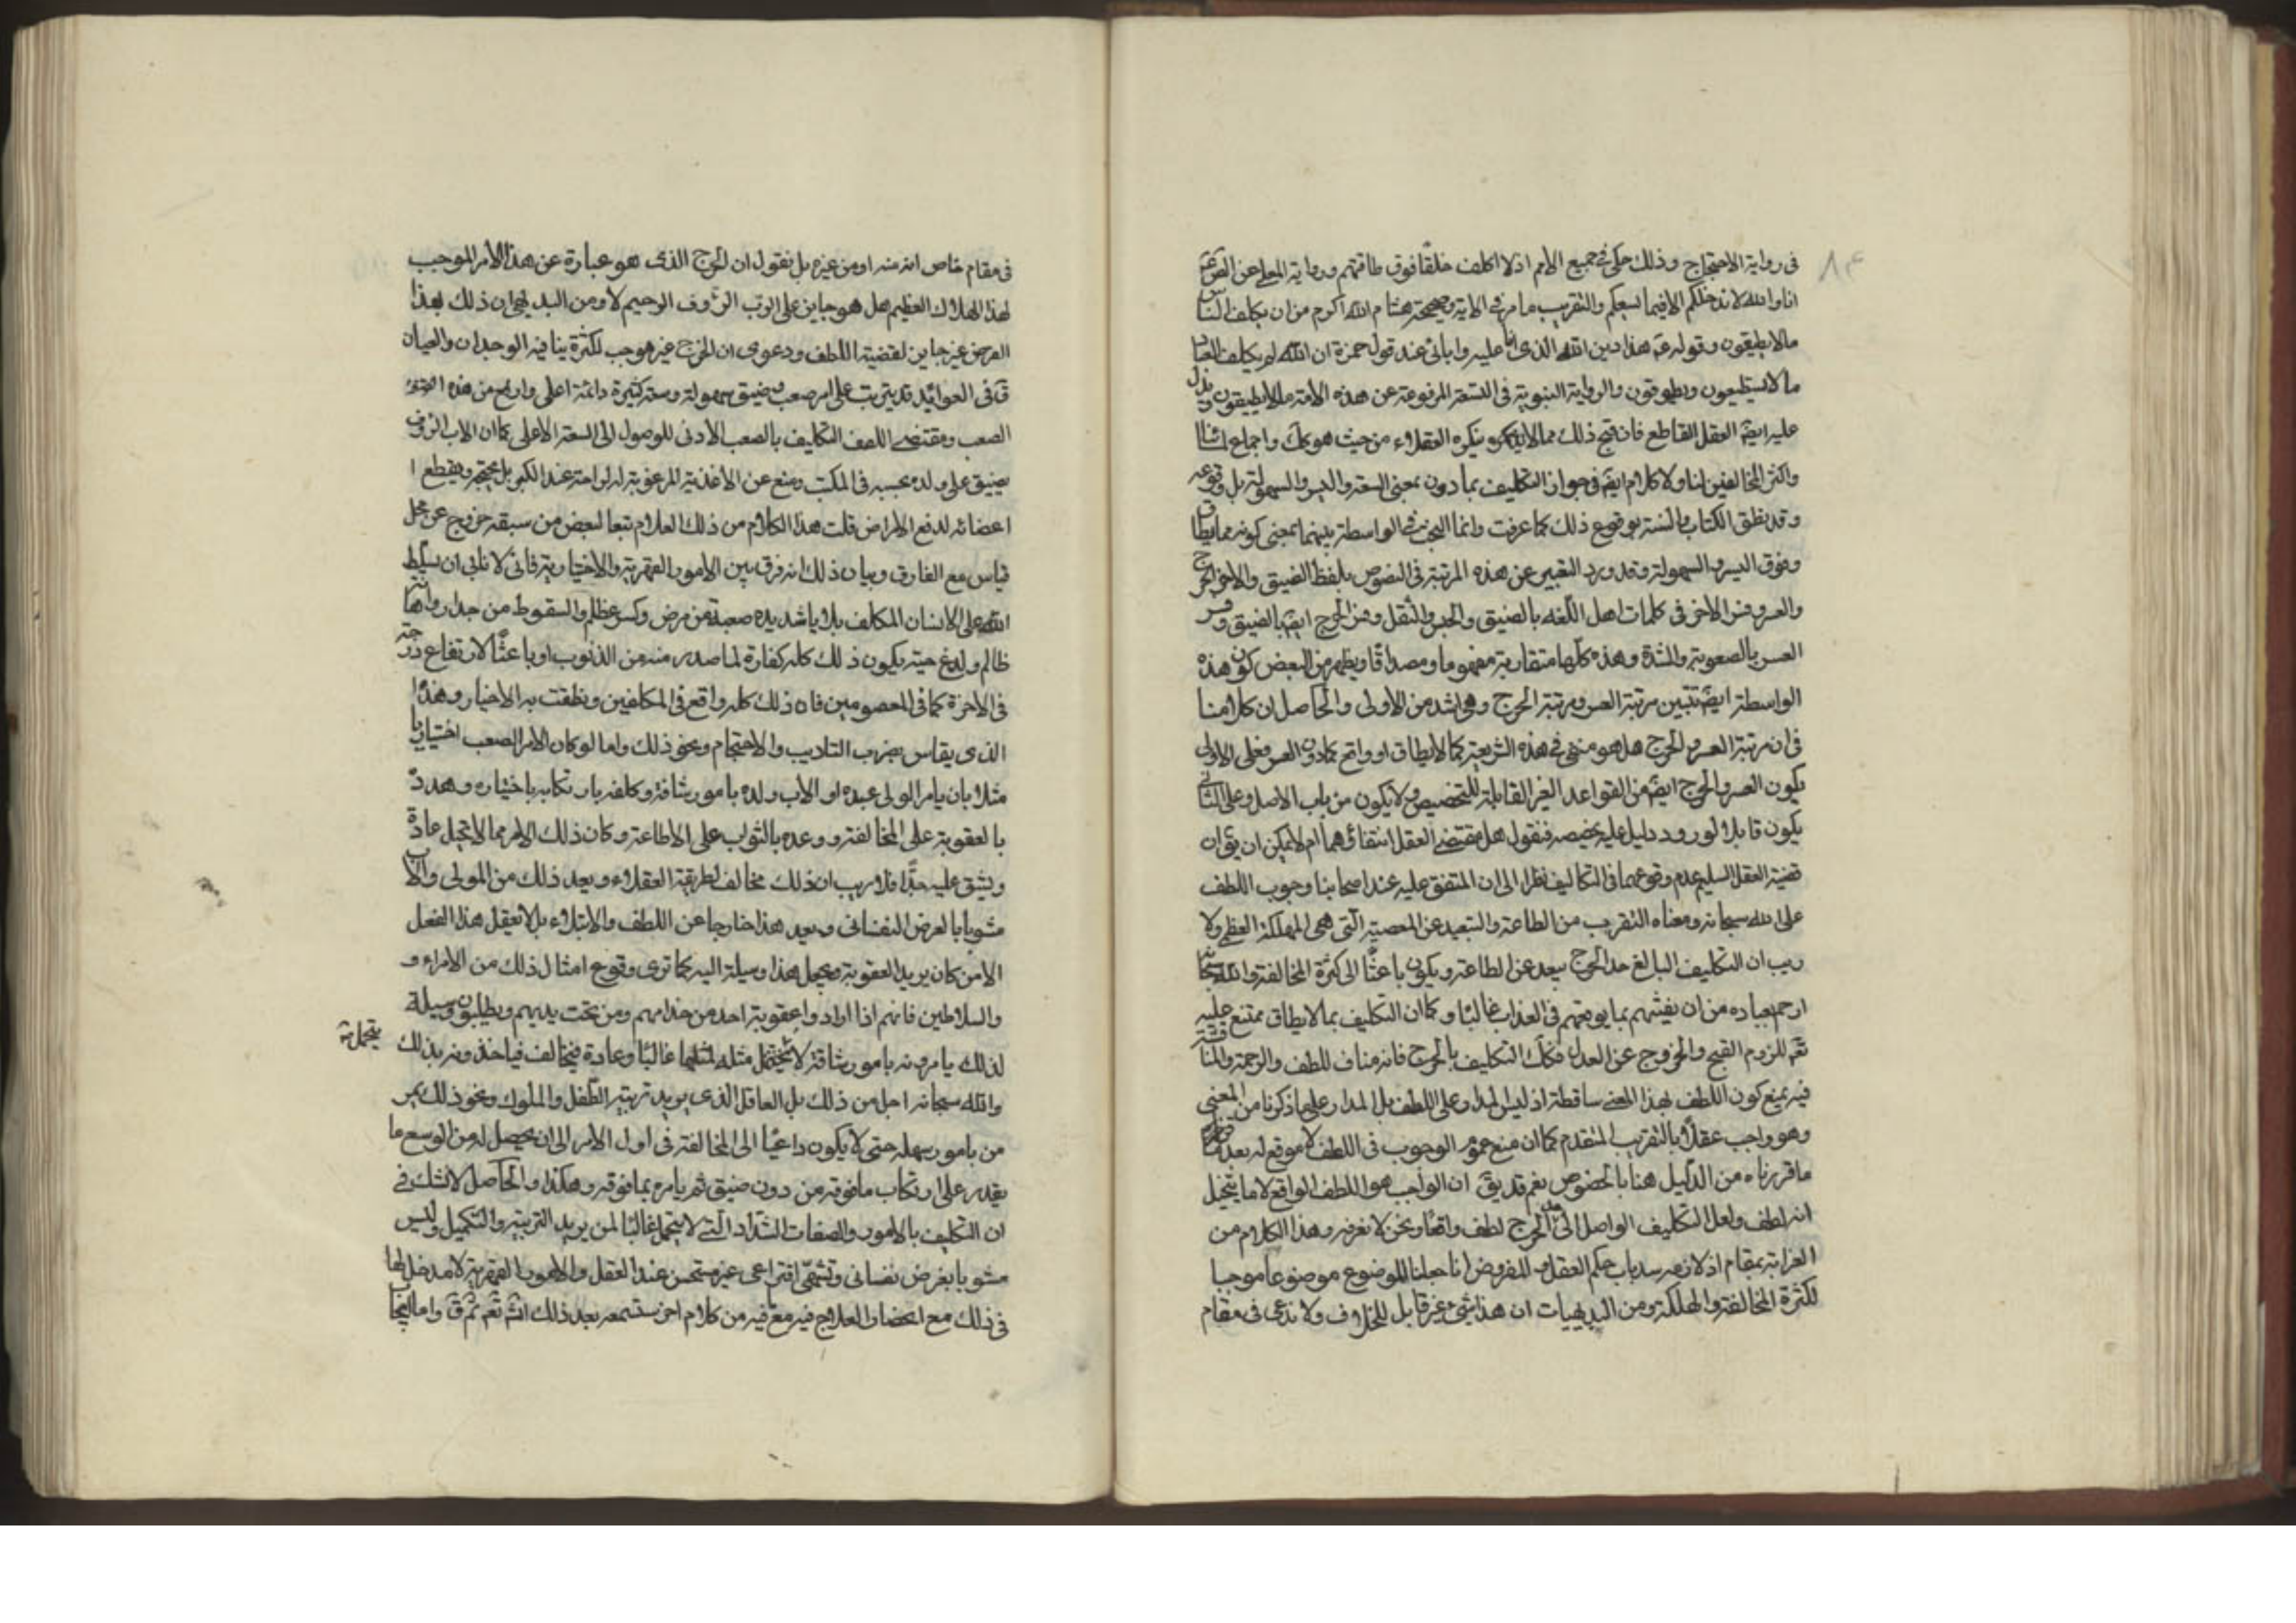 ٨٤
فى رواية الاحتجاج وذلك حكمى فى جميع الامم اذ لا اكلف خلقا فوق طاقتهم ورواية المعلى عن الص عم
انا والله لا ندخلكم الا فيما يسعكم والتقريب ما مر فى الاية وصحيحة هشام الله اكرم من ان يكلف الناس
ما لا يطيقون وقوله عم هذا دين الله الذى انا عليه وابائى عند قول حمزة ان الله لم يكلف العباد
ما لا يستطيعون ويطوقون والرواية النبوية فى التسعة المرفوعة عن هذه الامة ما لا يطيقون ويدل
عليه ايضً العقل القاطع فان قبح ذلك مما لا ينكره العقلاء من حيث هو كك واجماع
واكثر المخالفين لنا ولا كلام ايضً فى جواز التكليف بما دون بمعنى السعة واليسر والسهولة بل وقوعه
وقد نطق الكتاب والسنة بوقوع ذلك كما عرفت وانما البحث فى الواسطة بينهما بمعنى كونه مما يطاق
وفوق اليسر والسهولة وقد ورد التعبير عن هذه المرتبة فى النصوص بلفظ الضيق والاصر والحرج
والعسر وفسر الاخر فى كلمات اهل اللغه بالضيق والحبس والثقل وفسر الحرج ايضً بالضيق وفسر
العسر بالصعوبة والشدة وهذه كلها متقاربة مفهوما ومصداقا ويظهر من البعض كون هذه
الواسطة ايضً تبين مرتبة العسر ومرتبة الحرج وهى اشد من الاولى والحاصل ان كلامنا
فى ان مرتبة العسر والحرج هل هو منفى فى هذه الشريعة كما لا يطاق او واقع كما دون العسر فعلى الاولى
يكون العسر والحرج ايضً من القواعد الغير القابلة للتخصيص ولا يكون من باب الاصل وعلى الثانى
يكون قابلا لورود دليل عليه يخصصه فنقول هل مقتضى العقل انتفائهما ام لا يمكن ان يق ان
قضية العقل السليم عدم وقوعهما فى التكاليف نظرا الى ان المتفق عليه عند اصحابنا وجوب اللطف
على الله سبحانه ومعناه التقريب من الطاعة والتبعيد عن المعصية التى هى المهلكة العظمى ولا
ريب ان التكليف البالغ حد الحرج يبعد عن الطاعة ويكون باعثا الى كثرة المخالفة والله سبحانه
ارحم بعباده من ان يفتنهم بما يوقعهم فى العذاب غالبا وكما ان التكليف بما لا يطاق ممتنع عليه
تعم للزوم القبح والخروج عن العدل فكك التكليف بالحرج فانه مناف للطف والرحمة والمناقشة
فيه بمنع كون اللطف بهذا المعنى ساقطة اذ ليس المدار على اللطف بل المدار على ما ذكرنا من المعنى
وهو واجب عقلا بالتقريب المتقدم كما ان منع عموم الوجوب فى اللطف لا موقع له بعد
ما قررناه من الدليل هنا بالخصوص نعم قد يق ان الواجب هو اللطف الواقع لا ما يتخيل
انه لطف ولعل التكليف الواصل الى حد الحرج لطف واقعا ونحن لا نعرفه وهذا الكلام من
الغرابة بمقام اذ لازمه سد باب حكم العقل المفروض انا جعلنا الموضوع موضوعا موجبا
لكثرة المخالفة والهلكة ومن البديهيات ان هذا شىء غير قابل للخلاف ولا ندعى فى مقام
فى مقام خاص انه منه او من غيره بل نقول ان الحرج الذى هو عبارة عن هذا الامر الموجب
لهذا الهلاك العظيم هل هو جايز على الرب الرؤف الرحيم لا ومن البديهى ان ذلك بهذا
الفرض غير جايز لقضية اللطف ودعوى ان الحرج غير موجب لكثرة ينافيه الوجدان والعيان
ق فى العوائد قد يترتب على امر صعب وضيق سهولة وسعة كثيرة دائمة اعلى وارفع من هذه
الصعب ومقتضى اللطف التكليف بالصعب الادنى للوصول الى السعة الاعلى كما ان الاب الرؤف
يضيق على ولده بحبسه فى المكتب ومنع عن الاغذية المرغوبة له لراحته عند الكبر بل يحتجم ويقطع ا
اعضائه لدفع الامراض قلت هذا الكلام من ذلك العلام تبعا لبعض من سبقه خروج عن محل
قياس مع الفارق وبيان ذلك انه فرق بين الامور القهرية والاختيارية فانى لا نابى ان يسلط
الله على الانسان المكلف بلايا شديده صعبة من مرض وكسر عظم والسقوط من جدار واتيان
ظالم ولدغ حية يكون ذلك كله كفارة لما صدر منه من الذنوب او باعثا لارتفاع درجته
فى الاخرة كما فى المعصومين فان ذلك كله واقع فى المكلفين ونطقت به الاخبار وهذا
الذى يقاس بضرب التاديب والاحتجام ونحو ذلك واما لو كان الامر الصعب اختياريا
مثلا بان يامر المولى عبده او الاب ولده بامور شاقة وكلفه بارتكابه باختياره وهدد
بالعقوبة على المخالفة ووعده بالثواب على الاطاعة وكان ذلك الامر مما لا يتحمل عادة
ويشق عليه جدا فلا ريب ان ذلك مخالف لطريقة العقلاء ويعد ذلك من المولى والاب
مشوبا بالغرض النفسانى ويعد هذا خارجا عن اللطف والابتلاء بل لا يفعل هذا الفعل
الا من كان يريد العقوبة ويجعل هذا وسيلة اليه كما ترى وقوع امثال ذلك من الامراء و
والسلاطين فانهم اذا ارادوا عقوبة احد من خدامهم ومن تحت يديهم ويطلبون وسيلة
لذلك يامرونه بامور شاقة لا يتحمل مثله لمثلها غالبا وعادة فيخالف فياخذونه بذلك
يتحمل
والله سبحانه اجل من ذلك بل العاقل الذى يريد تربية الطفل والملوك ونحو ذلك يمر
من بامور سهله حتى لا يكون داعيا الى المخالفة فى اول الامر الى ان يحصل له من الوسع ما
يقدر على ارتكاب ما فوقه من دون ضيق ثم يامره بما فوقه وهكذا والحاصل لا شك فى
ان التكليف بالامور والصفات الشداد التى لا يتحمل غالبا لمن يريد التربية والتكميل وليس
مشوبا بغرض نفسانى وتشهى اقتراحى غير مستحسن عند العقل والامور القهرية لا مدخل لها
فى ذلك مع انحصار العلاج فيه مع فيه من كلام اخر ستسمعه بعد ذلك انش تعم ثم ق واما